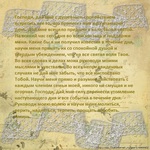 Господи, дай мне с душевным спокойствием
встретить все, что принесет мне наступающий
день. Дай мне всецело предаться воле Твоей святой.
На всякий час сего дня во всем наставь и поддержи
меня. Какие бы я ни получал известия в течение дня,
научи меня принять их со спокойной душой и
твердым убеждением, что на все святая воля Твоя.
Во всех словах и делах моих руководи моими
мыслями и чувствами. Во всех непредвиденных
случаях не дай мне забыть, что все ниспослано
Тобой. Научи меня прямо и разумно действовать с
каждым членом семьи моей, никого не смущая и не
огорчая. Господи, дай мне силу перенести утомление
наступающего дня и все события в течение дня.
Руководи моею волею и научи меня молиться,
верить, надеяться, терпеть, прощать и любить.
Аминь.